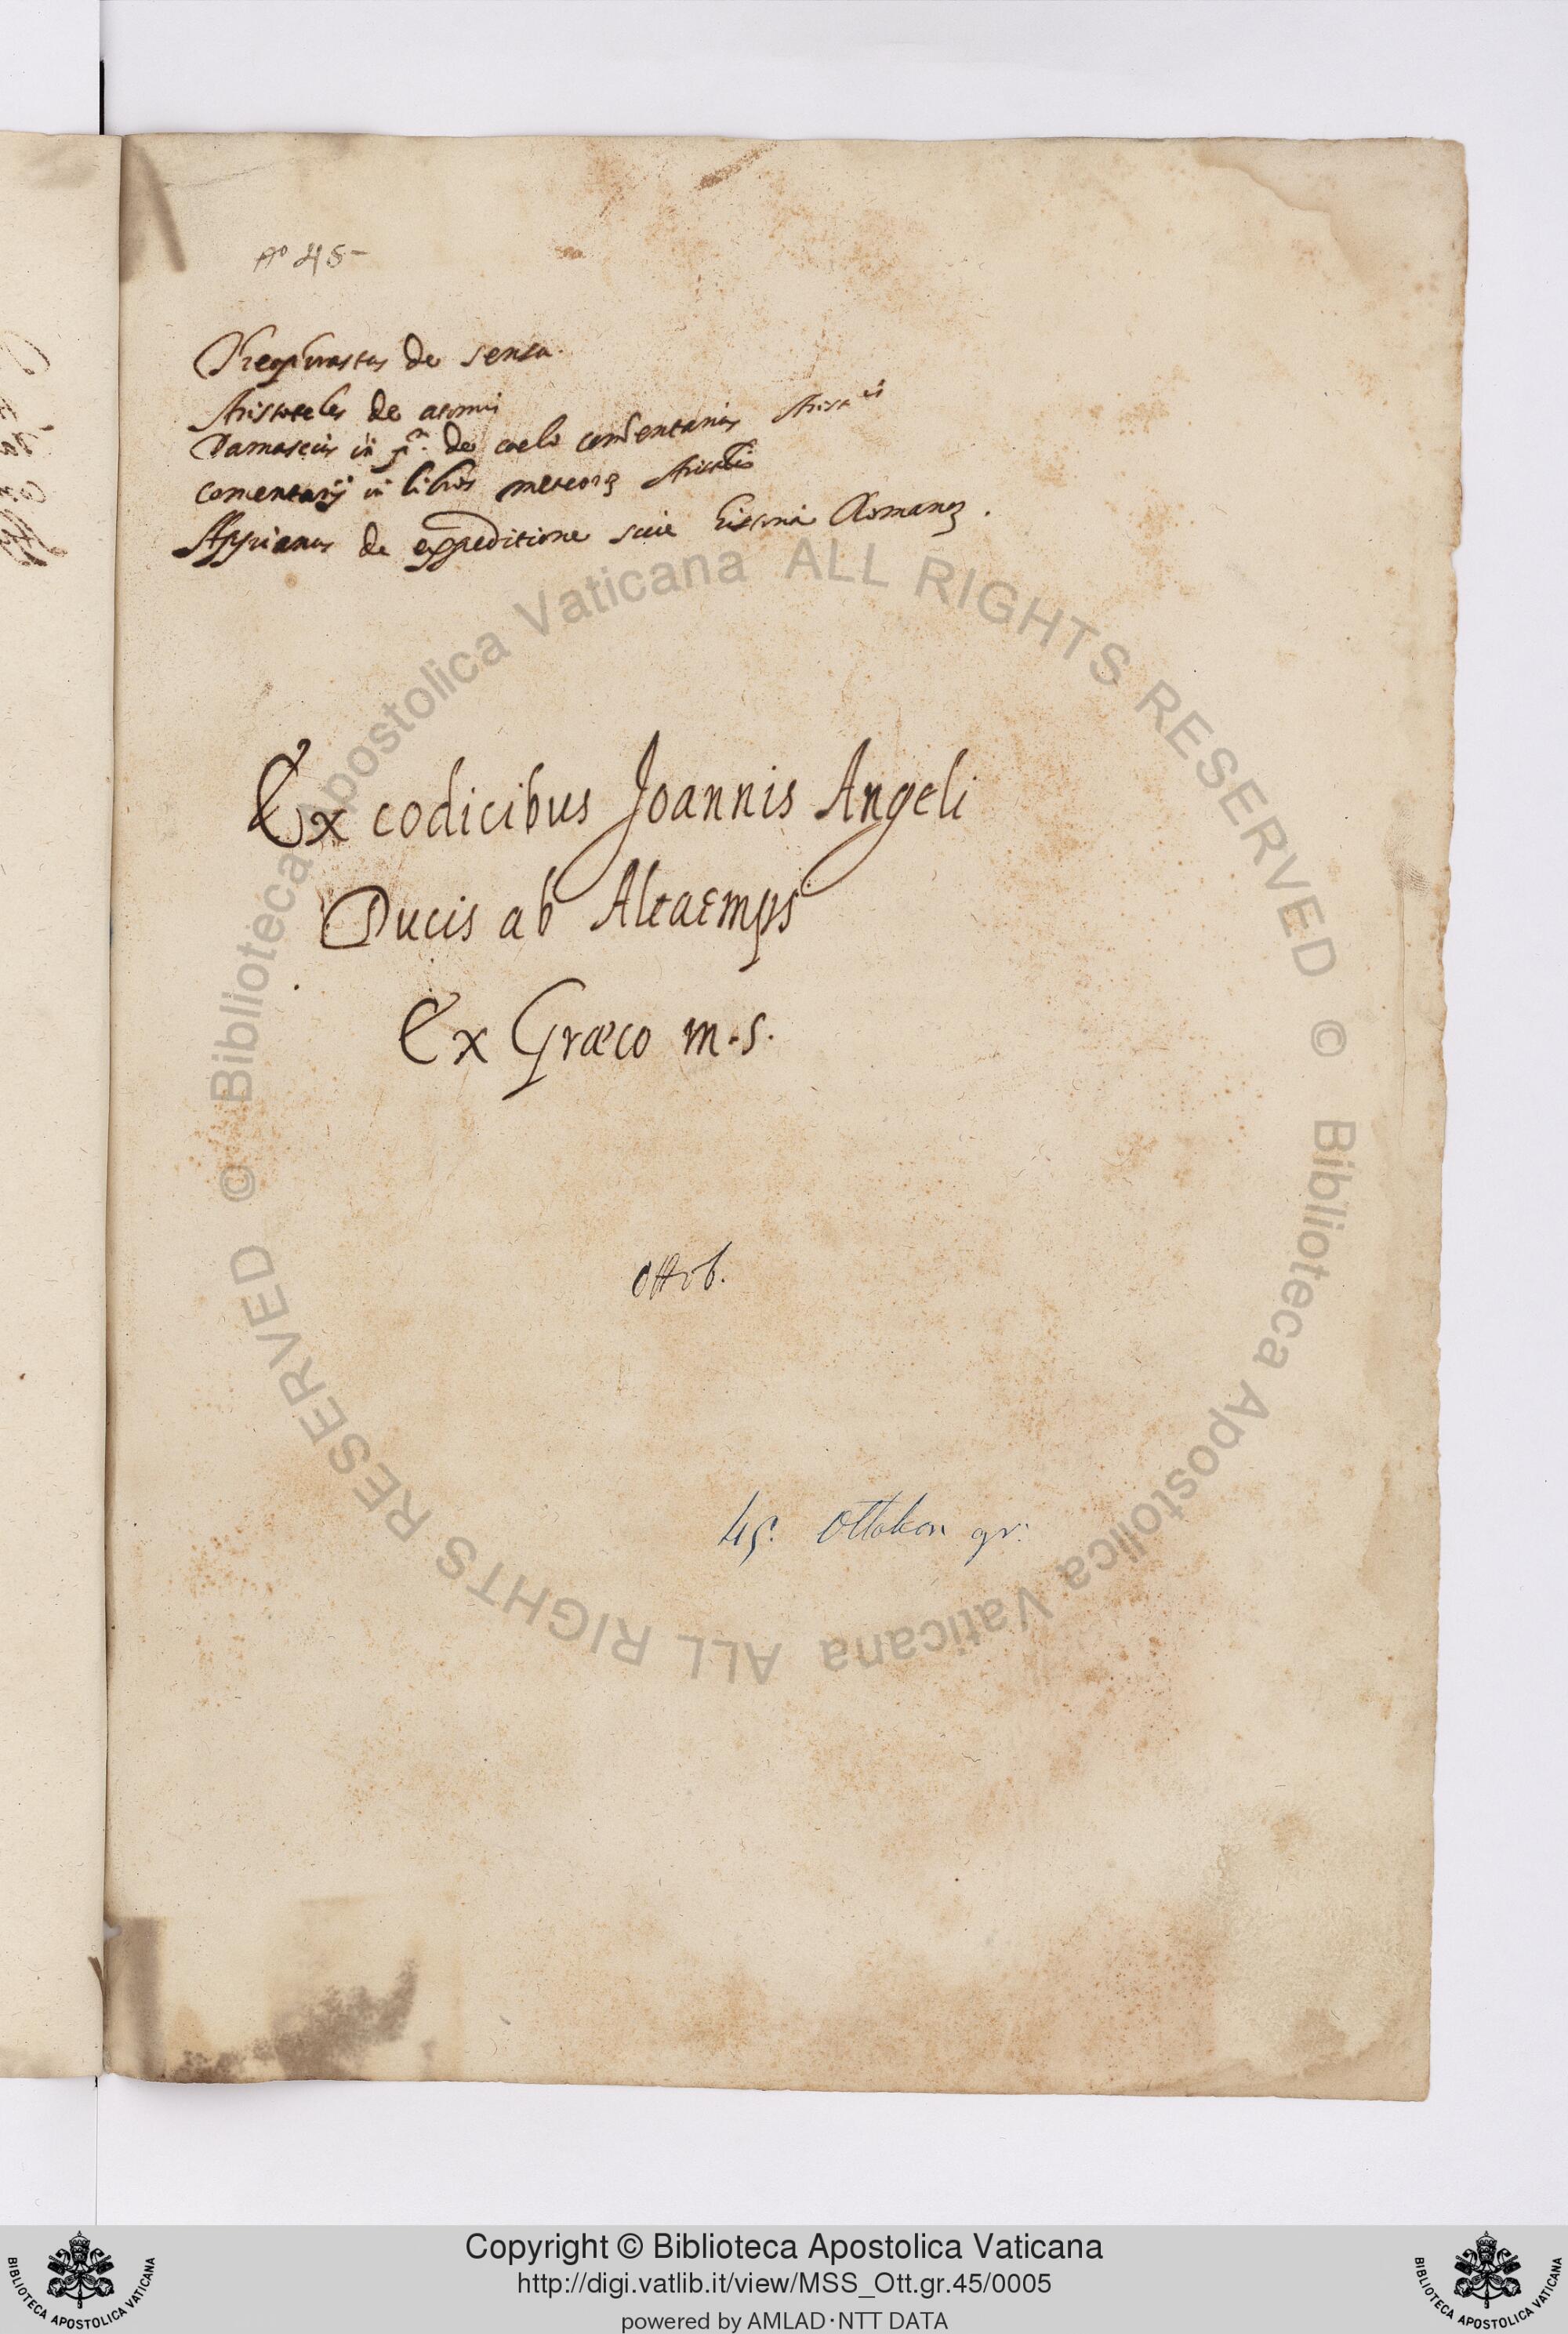 Aº 45
Theophrastus de sensu.
Aristoteles de atomis
Damascius in pm. de caelo comentarius Arist.is
Comentarij in libros meteorꝝ Arist.lis
Appianus de expeditione siue historia Romanoꝝ.
Ex codicibus Joannis Angeli
Ducis ab Altaemps
Ex Græco m.s.
Ottob.
45. Ottobon gr.
© Biblioteca Apostolica Vaticana ALL RIGHTS RESERVED
© Biblioteca Apostolica Vaticana ALL RIGHTS RESERVED
Copyright © Biblioteca Apostolica Vaticana
http://digi.vatlib.it/view/MSS_Ott.gr.45/0005
powered by AMLAD·NTT DATA
BIBLIOTECA APOSTOLICA VATICANA
BIBLIOTECA APOSTOLICA VATICANA